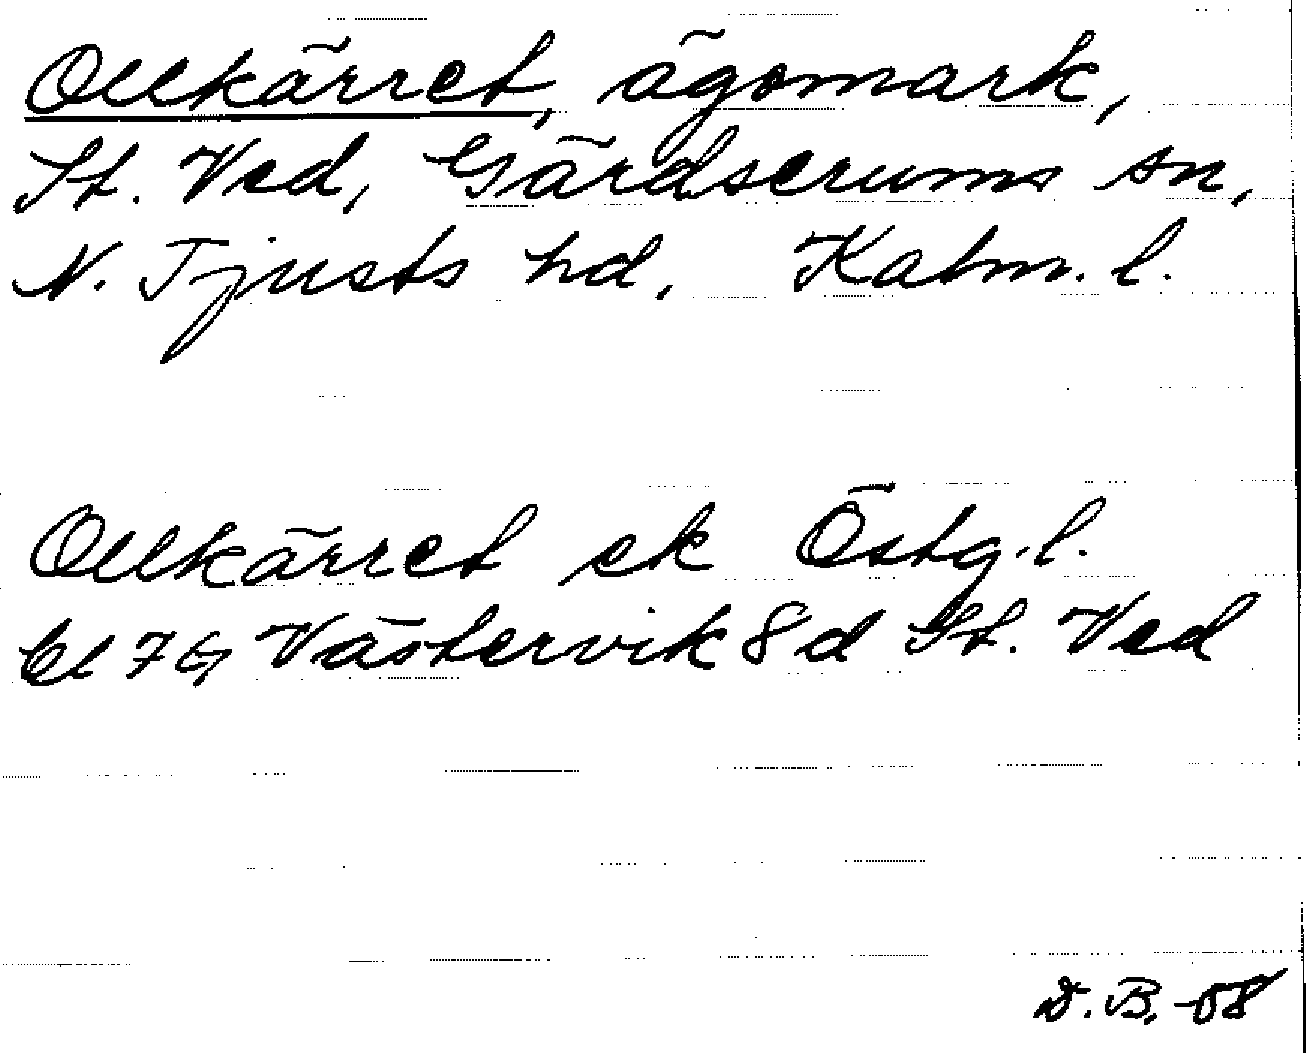 Ollkärret, ägomark,
St. Ved, Gärdserums sn,
N. Tjusts hd, Kalm. l.
Ollkärret ek Östg. l.
bl 7G Västervik 8d St. Ved
D. B. -58